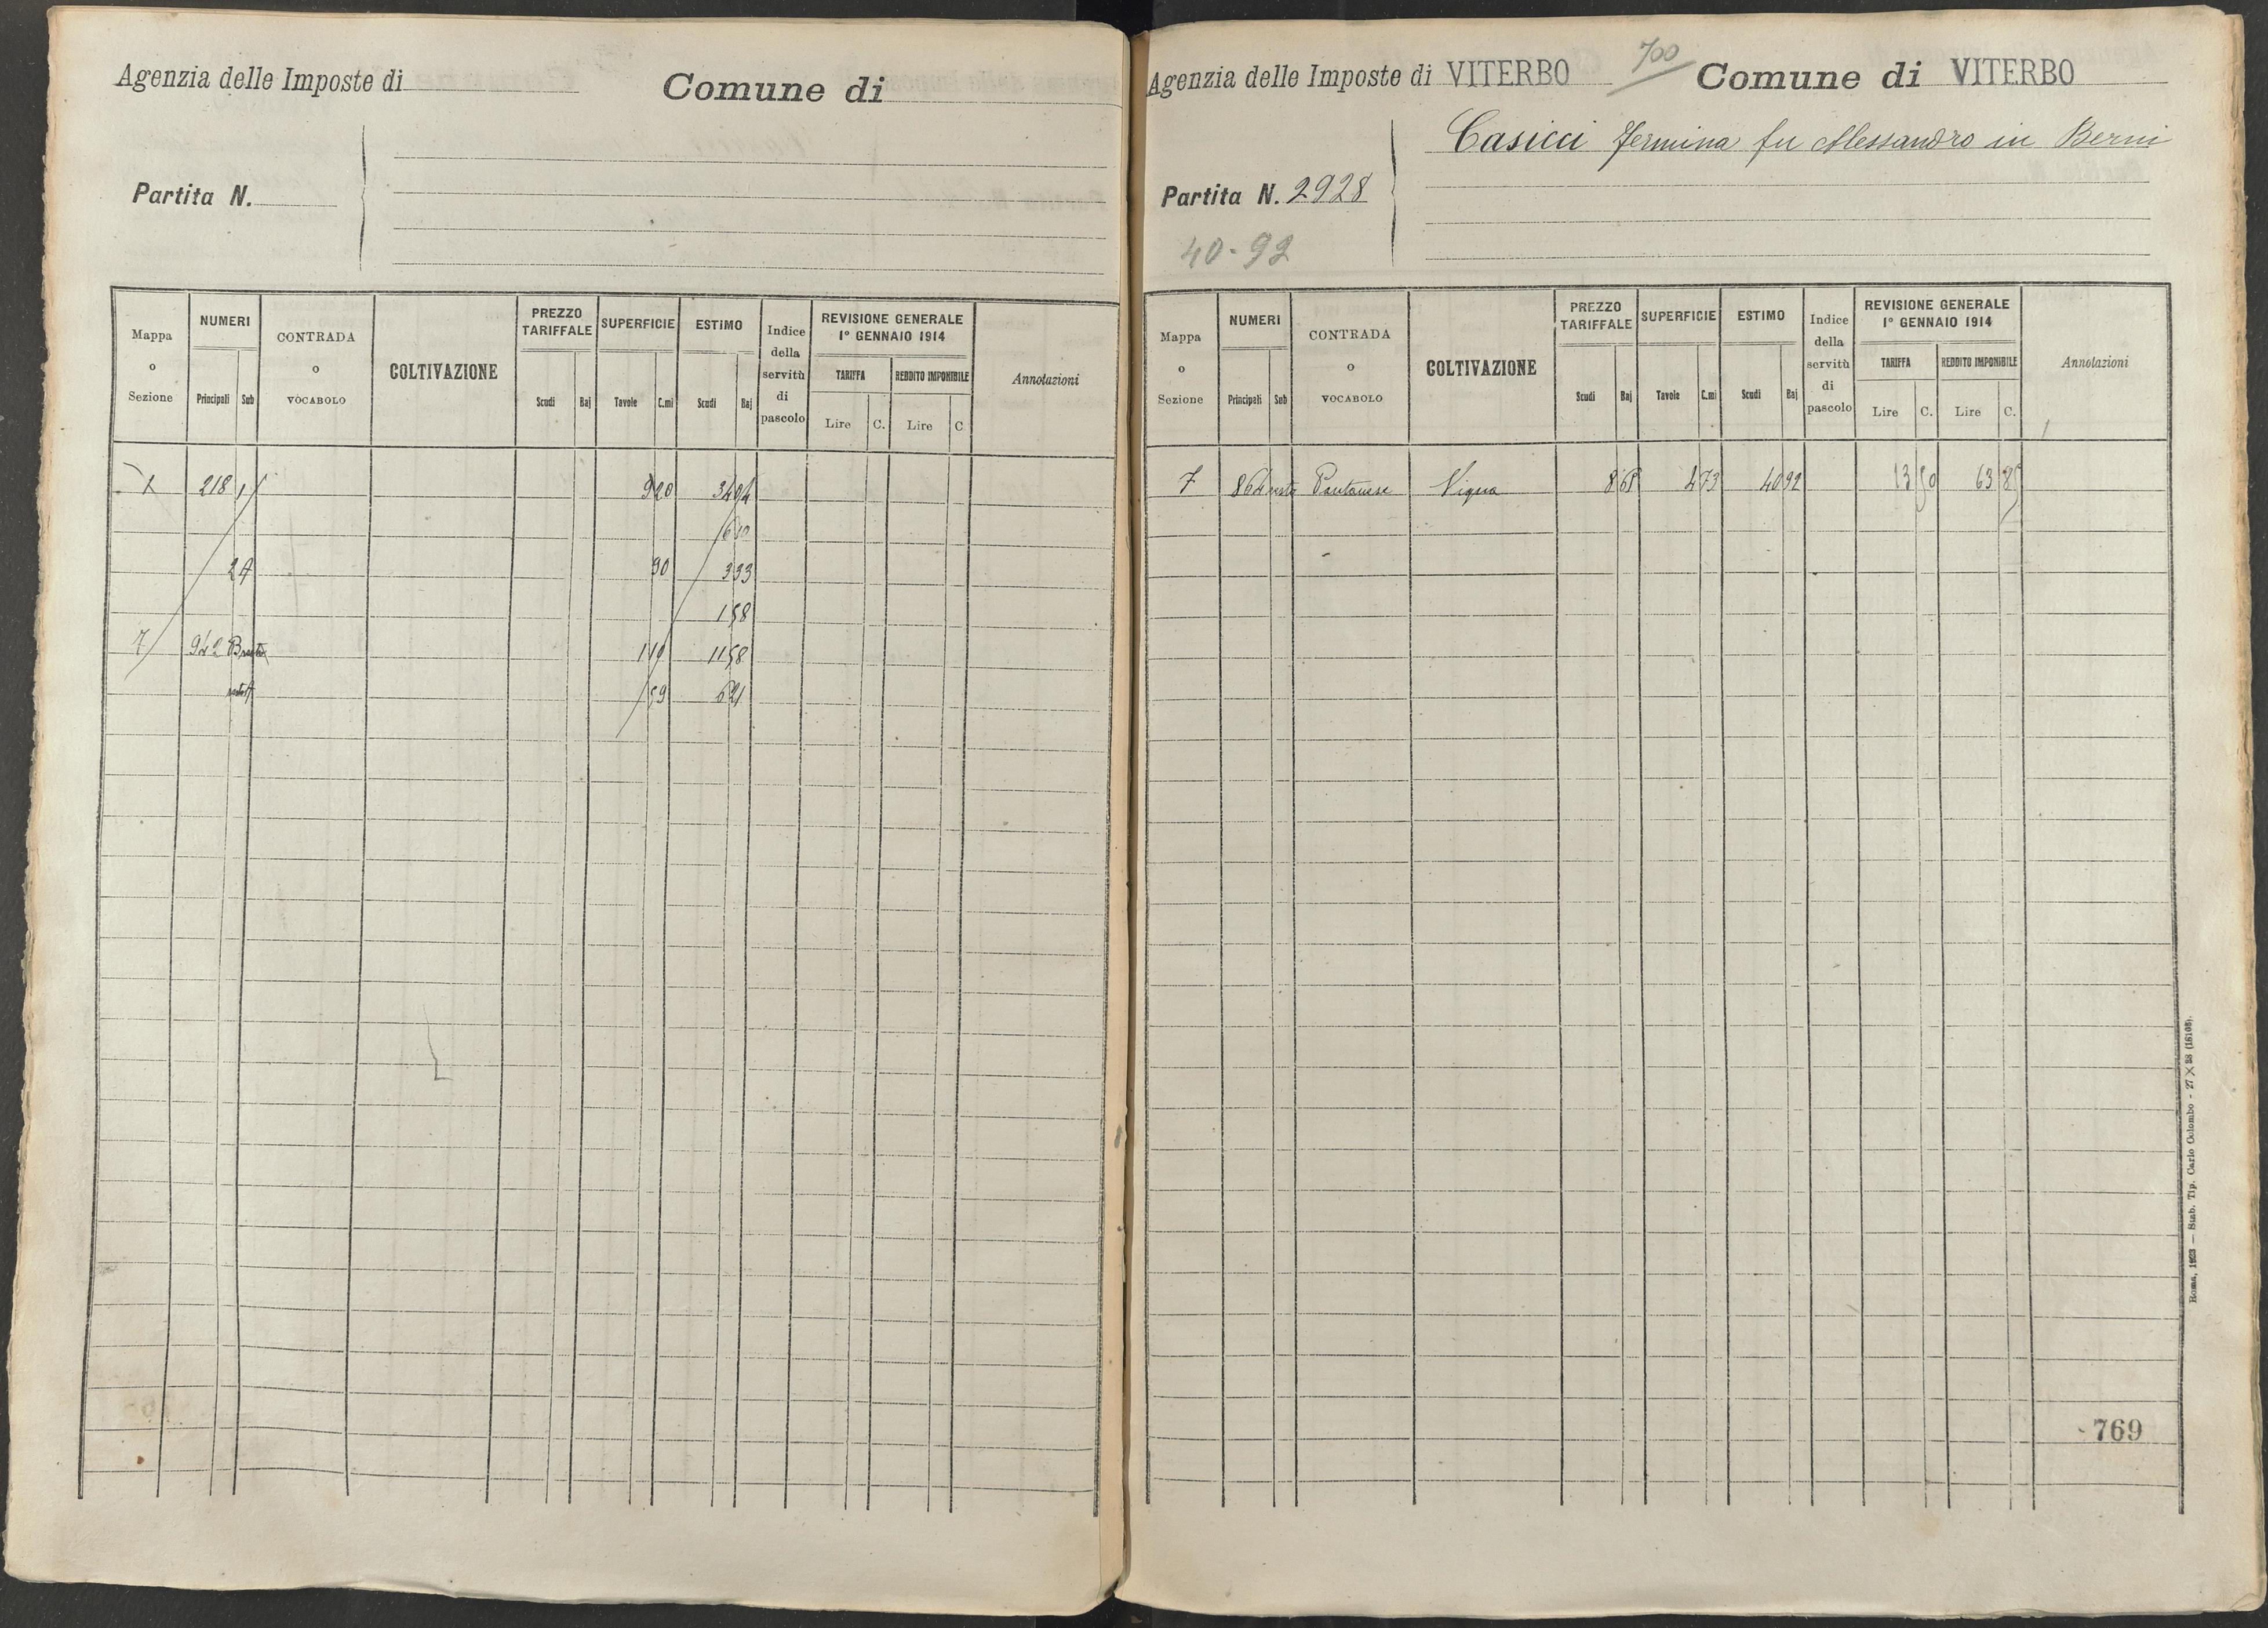 Agenzia delle Imposte di
Comune di
Partita N.
Mappa o Sezione
NUMERI
Principali Sub
CONTRADA O VOCABOLO
COLTIVAZIONE
PREZZO TARIFFALE
Scudi Baj
SUPERFICIE
Tavole C.mi
ESTIMO
Scudi Baj
Indice della servitù di pascolo
REVISIONE GENERALE
1° GENNAIO 1914
TARIFFA
Lire C.
REDDITO IMPONIBILE
Lire C
Annotazioni
1 218 1 920 3494
610
2A 90 333
158
7 942 B resto 110 1158
59 621
Agenzia delle Imposte di VITERBO
700
Comune di VITERBO
Casicci Fermina fu Alessandro in Berni
Partita N. 2928
40-92
Mappa o Sezione
NUMERI
Principali Sub
CONTRADA O VOCABOLO
COLTIVAZIONE
PREZZO TARIFFALE
Scudi Baj
SUPERFICIE
Tavole C.mi
ESTIMO
Scudi Baj
Indice della servitù di pascolo
REVISIONE GENERALE
1° GENNAIO 1914
TARIFFA
Lire C.
REDDITO IMPONIBILE
Lire C.
Annotazioni
7 864 resto Pantanese Vigna 8 65 4 73 40 92 13 50 63 85
769
Roma, 1923 — Stab. Tip. Carlo Colombo - 27 X 23 (16105).